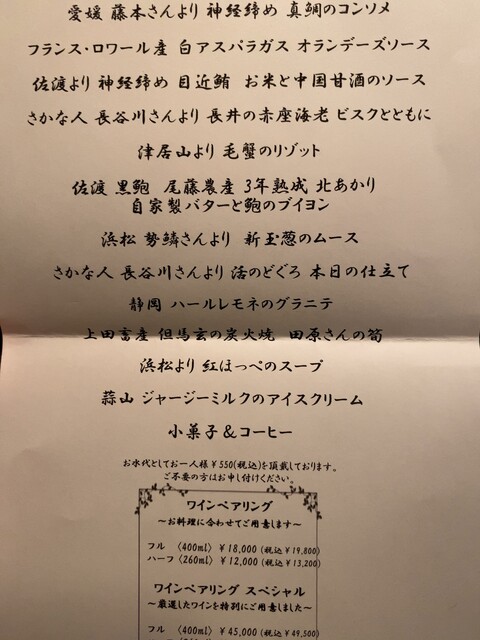 愛媛 藤本さんより 神経締め 真鯛のコンソメ
フランス・ロワール産 白アスパラガス オランデーズソース
佐渡より 神経締め 目近鮪 お米と中国甘酒のソース
さかな人 長谷川さんより 長井の赤座海老 ビスクとともに
津居山より 毛蟹のリゾット
佐渡 黒鮑 尾藤農産 3年熟成 北あかり
自家製バターと鮑のブイヨン
浜松 勢鱗さんより 新玉葱のムース
さかな人 長谷川さんより 活のどぐろ 本日の仕立て
静岡 ハールレモネのグラニテ
上田畜産 但馬玄の炭火焼 田原さんの筍
浜松より 紅ほっぺのスープ
蒜山 ジャージーミルクのアイスクリーム
小菓子&コーヒー
お水代としてお一人様¥550(税込)を頂戴しております。
ご不要の方はお申し付けください。
ワインペアリング
~お料理に合わせてご用意します~
フル 〈400ml〉 ¥18,000 (税込¥19,800)
ハーフ〈260ml〉 ¥12,000 (税込¥13,200)
ワインペアリング スペシャル
~厳選したワインを特別にご用意しました~
フル 〈400ml〉 ¥45,000 (税込¥49,500)